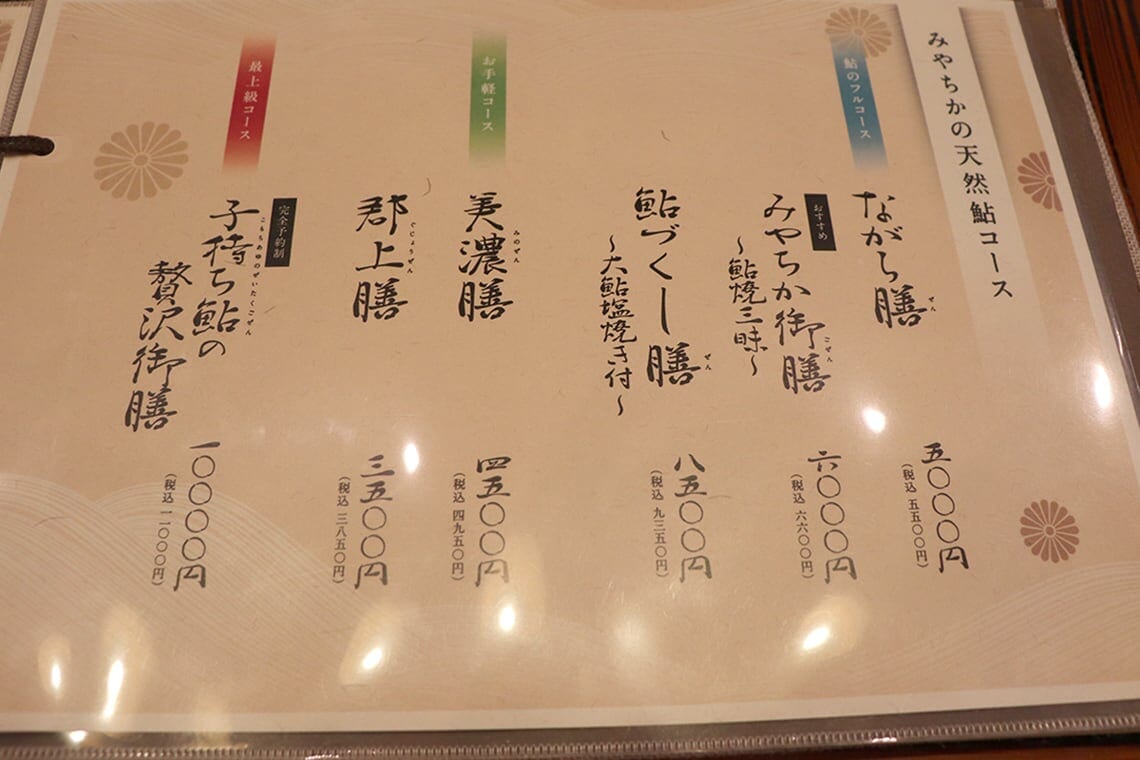 みやちかの天然鮎コース
鮎のフルコース
ながら膳
ぜん
五〇〇〇円
(税込 五五〇〇円)
おすすめ
みやちか御膳
ごぜん
～鮎焼三昧～
六〇〇〇円
(税込 六六〇〇円)
鮎づくし膳
ぜん
～大鮎塩焼き付～
八五〇〇円
(税込 九三五〇円)
お手軽コース
美濃膳
みのぜん
四五〇〇円
(税込 四九五〇円)
郡上膳
ぐじょうぜん
三五〇〇円
(税込 三八五〇円)
最上級コース
完全予約制
子持ち鮎の
贅沢御膳
こもちあゆのぜいたくごぜん
一〇〇〇〇円
(税込 一一〇〇〇円)